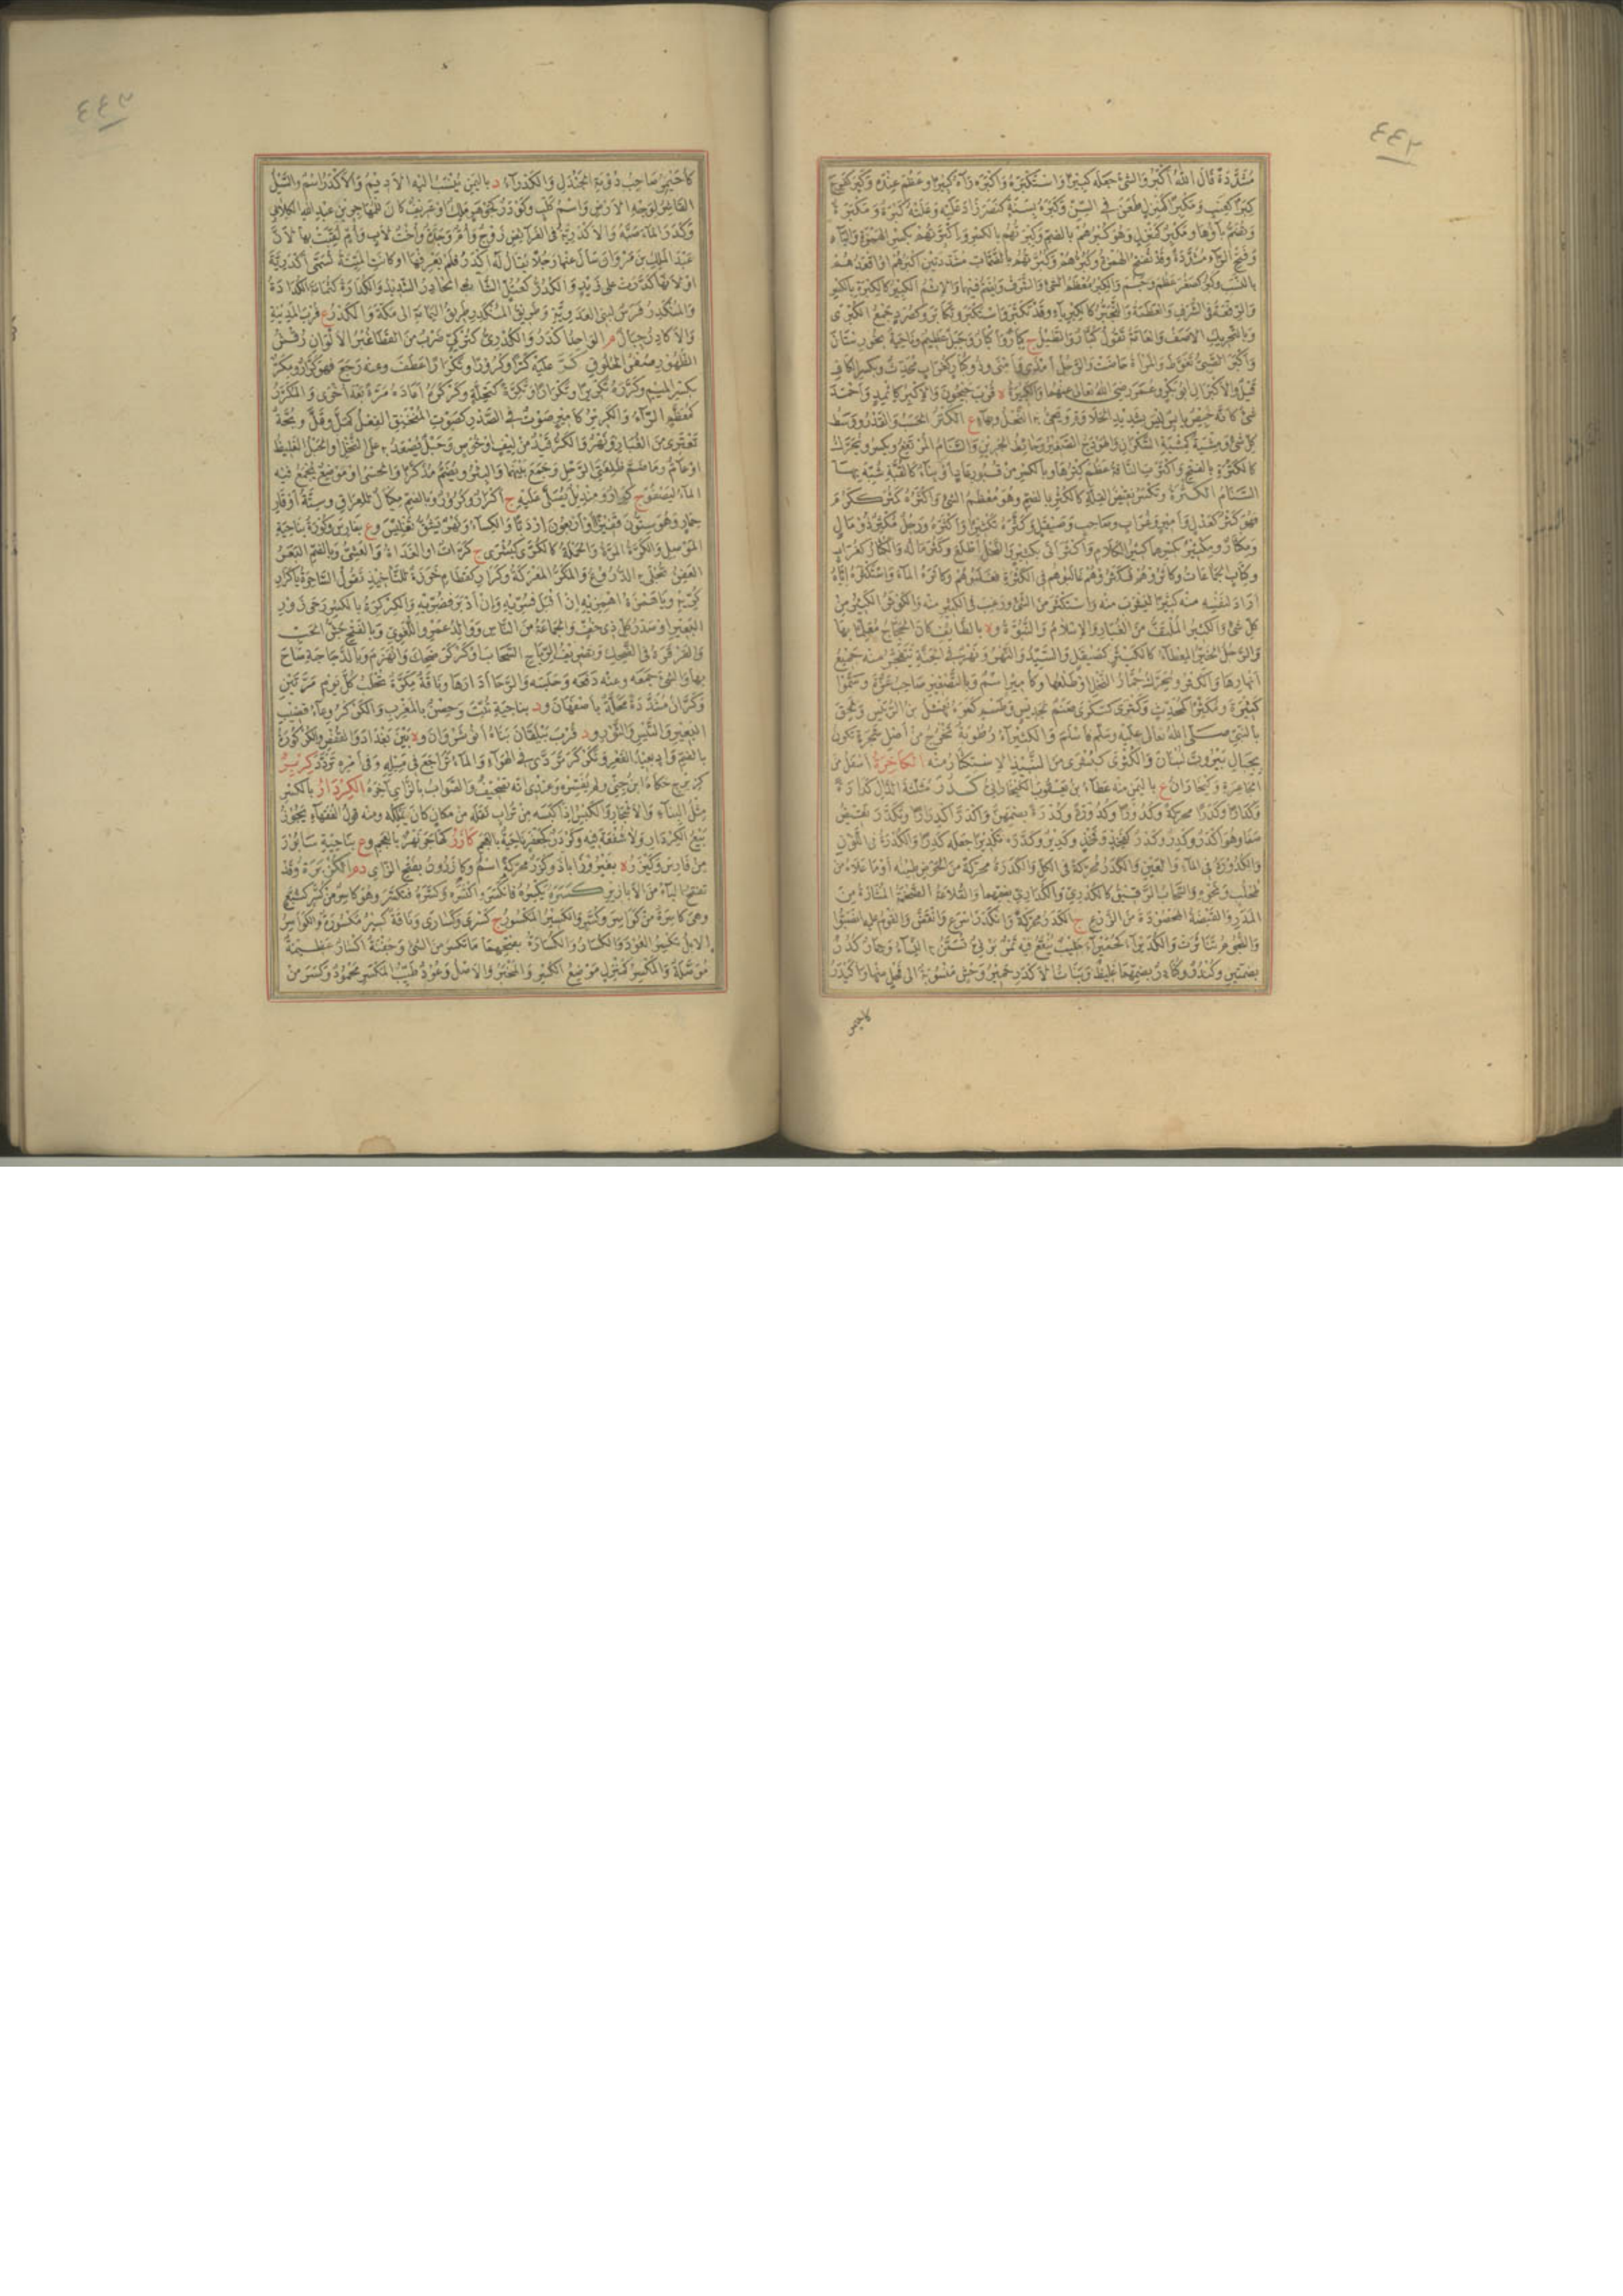 ٤٤٢
مُشَدَّدَةً قال اللهُ أكْبَرُ والشئَ جعله كبيرًا واسْتَكْبَرَهُ وأكْبَرَه رآه كبيرًا وعَظُمَ عنده وكَبِرَ كفَرِحَ
كِبَرًا كعِنَبٍ ومَكْبِرًا كمَنْزِلٍ طَعَنَ في السِّنِّ وكَبَرَهُ بسَنَةٍ كنَصَرَ زادَ عليه وعَلَتْهُ كَبْرَةٌ ومَكْبَرَةٌ
وتُضَمُّ باؤها ومَكْبِرٌ كمنزل وهو كُبْرُهُمْ بالضم وكِبْرَتُهُم بالكسر وإكْبِرَّتُهُم بكسر الهمزة والباء
وفتح الراء مشددةً وقد تُفتح الهمزة وكُبُرُّهُمْ وكُبُرَّتُهُم بالضمات مشددتين أكبرهم أو أقعدهم
بالنسب وكَبُرَ كصَغُرَ عَظُمَ وجَسُمَ والكِبْرُ مُعْظَمُ الشئ والشرف ويُضم فيهما والإثم الكبير كالكِبْرَةِ بالكسر
والرِّفْعَةُ في الشرف والعَظَمَةُ والتَّجَبُّرُ كالكِبْرِياء وقد تَكَبَّرَ واسْتَكْبَرَ وتكابَرَ وكصُرَدٍ جمع الكُبْرَى
وبالتحريك الأصَفُ والعامة تقول كُبَّارٌ والطبل ج كِبارٌ وأكْبارٌ وجبل عظيم وناحية بخوزستان
وأكْبَرَ الصبيُّ تَغَوَّطَ والمرأة حاضت والرجل أمْذَى وأمْنَى وذو كُبارٍ كغُراب محدث وبكسر الكاف
قَيْلٌ والأكبران أبو بكر وعمر رضي الله تعالى عنهما والكَبِيرَةُ ة قرب جيحون والإكبر كإثمد وأحمد
شئ كأنه خبيص يابس ليس بشديد الحلاوة يجئ به النحل وعاء ع الكَتْرُ الحسب والقدر ووسط
كل شئ ومِشْيَةٌ كمشية السكران والهودج الصغير وحائط الجرين والسنام المرتفع ويكسر ويحرك
كالكَتْرَةِ بالفتح وأكْتَرَت الناقة عظم كترها وبالكسر من قبور عاد أو بناء كالقبة شبه بها
السنام الكَثْرَةُ وتكسر نقيض القلة كالكثر بالضم وهو معظم الشئ وأكثره كَثُرَ ككرم
فهو كَثْرٌ كعدل وأمير وغراب وصاحب وصيقل وكَثَّرَه تكثيرًا وأكثره ورجل مُكْثِرٌ ذو مال
ومِكْثارٌ ومِكْثِيرٌ بكسرهما كثير الكلام وأكثر أتى بكثير والنخل أطلع وكثر ماله والكثار كغراب
وكتاب الجماعات وكاثروهم فكثروهم غالبوهم في الكثرة فغلبوهم وكاثره الماء واستكثره إياه
أراد لنفسه منه كثيرًا ليشرب منه واستكثر من الشئ رغب في الكثير منه والكوثر الكثير من
كل شئ والكثير الملتف من الغبار والإسلام والنبوة وة بالطائف كان الحجاج معلمًا بها
والرجل الخَيِّرُ المعطاء كالكَيْثَر كصيقل والسيد والنهر ونهر في الجنة تتفجر منه جميع
أنهارها والكثر ويحرك جُمَّار النخل أو طلعها وكأمير اسم وبالتصغير صاحب عزة وسموا
كثيرة ومُكَثِّرًا كمحدث وكَثْرَى كسكرى صنم لجديس وطسم كسره نهشل بن الربيس ولحق
بالنبي صلى الله تعالى عليه وسلم فأسلم والكَثِيراءُ رطوبة تخرج من أصل شجرة تكون
بجبال بيروت لبنان والكُثْرَى كبشرى من النبيذ الاستكثار منه الكاخِرَةُ أسفل من
الجاعرة وكَيْخارانُ ع باليمن منه عطاء بن يعقوب الكيخاراني كدر مثلثة الدال كدارة
وكَدَرًا محركة وكُدورًا وكُدورةً وكُدْرَةً بضمهن واكْدَرَّ اكْدِرارًا وتَكَدَّرَ نقيض
صفا وهو أكدر وكَدِرٌ وكَدْرٌ كفخِذ وفخْذ وكَديرٌ وكدَّره تكديرًا جعله كدرًا والكُدْرَة في اللون
والكدورة في الماء والعين والكدر محركة في الكل والكدرة محركة من الحوض طينه أو ما علاه من
طحلب ونحوه والسحاب الرقيق كالكُدْرِيّ والكُدارِيّ بضمهما والقلاعة الضخمة المثارة من
المدر والقبضة المحصودة من الزرع ج الكدر محركة وانْكَدَرَ أسرع وانقض والقوم عليه انصبوا
والنجوم تناثرت والكُدَيْراءُ كحميراء حليب ينقع فيه تمر برني تُسَمَّنُ به النساء وحمار كُدُرٌّ
بضمتين وكُنْدُرٌ وكُنادِرٌ بضمهما غليظ وبنات الأكدر حمير وحش منسوبة إلى فحل منها وأكيدر
كأحيمر
٤٤٣
كأُحَيْمِر صاحب دومة الجندل والكَدْراءُ د باليمن ينسب إليه الأديم والأكدر اسم والسيل
القاشر لوجه الأرض واسم كلب وكَوْدَرٌ كجوهر ملك أو عريف كان للمهاجر بن عبد الله الكلابي
وكدر الماء صبه والأكدرية في الفرائض زوج وأم وجد وأخت لأب وأم لقبت بها لأن
عبد الملك بن مروان سأل عنها رجلًا يقال له أكدر فلم يعرفها أو كانت الميتة تسمى أكدرية
أو لأنها كدرت على زيد والكُدُرُّ كعتل الشاب الحادر الشديد والكُدارَةُ كثمامة الكدادة
والمنكدر فرس لبني العدوية وطريق المنكدر طريق اليمامة إلى مكة والكدر ع قرب المدينة
والأكادر جبال م الواحد أكدر والكُدْرِيُّ كتركي ضرب من القطا غبر الألوان رقش
الظهور صفر الحلوق كرَّ عليه كرًا وكرورًا وتكرارًا عطف وعنه رجع فهو كرَّار ومكرّ
بكسر الميم وكرره تكريرًا وتكرارًا وتكرّة كتحلة وكركره أعاده مرة بعد أخرى والمكرر
كمعظم الراء والكرير كأمير صوت في الصدر كصوت المختنق الفعل كملّ وقلّ وبحة
تعتري من الغبار ونهر والكر قيد من ليف أو خوص وحبل يصعد به على النخل أو الحبل الغليظ
أو عام وما ضم ظلفتي الرحل وجمع بينهما والبئر ويضم مذكرًا والحسى أو موضع يجمع فيه
الماء ليصفو ج كرار ومنديل يصلى عليه ج أكرار وكرور وبالضم مكيال للعراق وستة أوقار
حمار وهو ستون قفيزًا أو أربعون إردبًا والكساء ونهر يشق تفليس وع بفارس وكورة بناحية
الموصل والكَرَّةُ المرة والحملة كالكُرَّى كبشرى ج كرات أو الغداة والعشي وبالضم البعر
العفن تجلى به الدروع والمَكَرُّ المعركة وكَرارِ كقطام خرزة للتأخيذ تقول الساحرة يا كرار
كريه ويا همرة اهمريه إن أقبل فسريه وإن أدبر فضريه والكِرْكِرَةُ بالكسر رحى زور
البعير أو صدر كل ذي خف والجماعة من الناس ووالد عمر واللغوي وبالفتح جش الحب
والقرقرة في الضحك وتصريف الرياح السحاب وكركر ضحك وانهزم وبالدجاجة صاح
بها والشئ جمعه وعنه دفعه وحبسه والرحا أدارها وناقة مكرة تحلب كل يوم مرتين
وكرَّان مشددة محلة بأصفهان ود بناحية تبت وحصن بالمغرب والكركر وعاء قضيب
البعير والتيس والثور ود قرب بيلقان بناه أنوشروان وة بين بغداد والقفص والكركورة
بالضم واد بعيد القعر وتكركر تردى في الهواء والماء تراجع في مسيله وفي أمره تردد كزبر
كزبرج حكاه ابن جني ولم يفسره وعندي أنه تصحيف والصواب بالزاي آخره الكِرْدارُ بالكسر
مثل البناء والأشجار والكبس إذا كبسه من تراب نقله من مكان كان يملكه ومنه قول الفقهاء يجوز
بيع الكردار ولا شفعة فيه وكردر كجعفر ناحية بالعجم كازر كهاجر نهر بالعجم وع بناحية سابور
من فارس وكيزر ة بفيروزاباذ وكَزَرٌ محركة اسم وكازرون بفتح الزاي د م الكُزْبَرَةُ وقد
تفتح الباء من الأبازير كسره يكسره فانكسر واكتسره وكسّره فتكسّر وهو كاسر من كُسَّر كركّع
وهي كاسرة من كواسر وكُسَّر والكسير المكسور ج كسرى وكسارى وناقة كسير مكسورة والكواسر
الإبل تكسر العود والكُسار والكُسارَةُ بضمهما ما تكسر من الشئ وجفنة أكسار عظيمة
موصلة والمكسر كمنزل موضع الكسر والمخبر والأصل وعود طيب المكسر محمود وكسر من